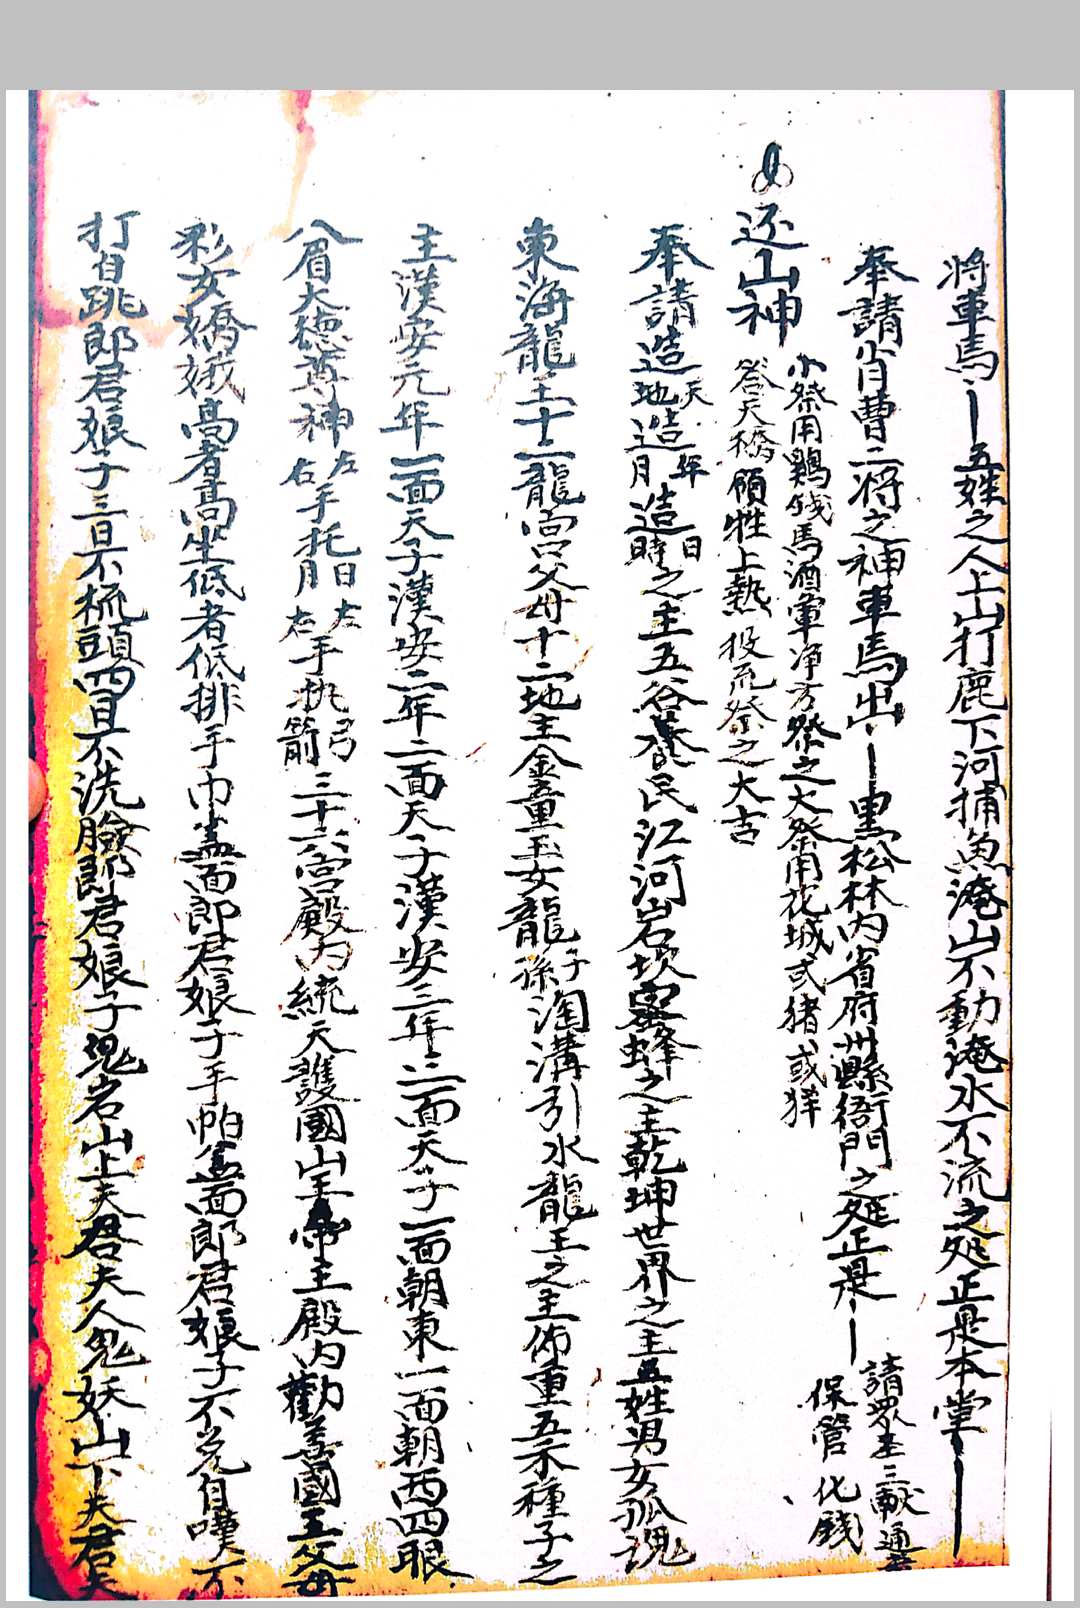 将車馬丨五姓之人上山打鹿下河捕魚淹山不動淹水不流之処正是本堂丨丨
奉請肖曹二将之神車馬出丨黒松林内省府州縣衙門之处正是丨
請眾圣三献通
保管化錢
还山神
小祭用鷄錢馬酒軍净方祭之大祭用花城或猪或羊
登天橋領牲上熟投元祭之大吉
奉請造天地造年月造日時之主五谷养民江河岩坎蜜蜂之主乾坤世界之主五姓男女孤魂
東海龍王十二龍宮父母十二地主金童玉女龍子孫淘溝引水龍王之主佈重五禾種子之
主漢安元年一面天子漢安二年二面天子漢安三年三面天子一面朝東一面朝西四眼
八眉大德尊神左右手托日月左右手执弓箭三十六宫殿内統天護國山王帝主殿内勸善國王父母
彩女嬌娥高者高坐低者低排手巾盖面郎君娘子手帕盖面郎君娘子不免自嘆不
打自跳郎君娘子三日不梳頭四日不洗臉郎君娘子鬼岩山上夫君夫人鬼妖山下夫君夫